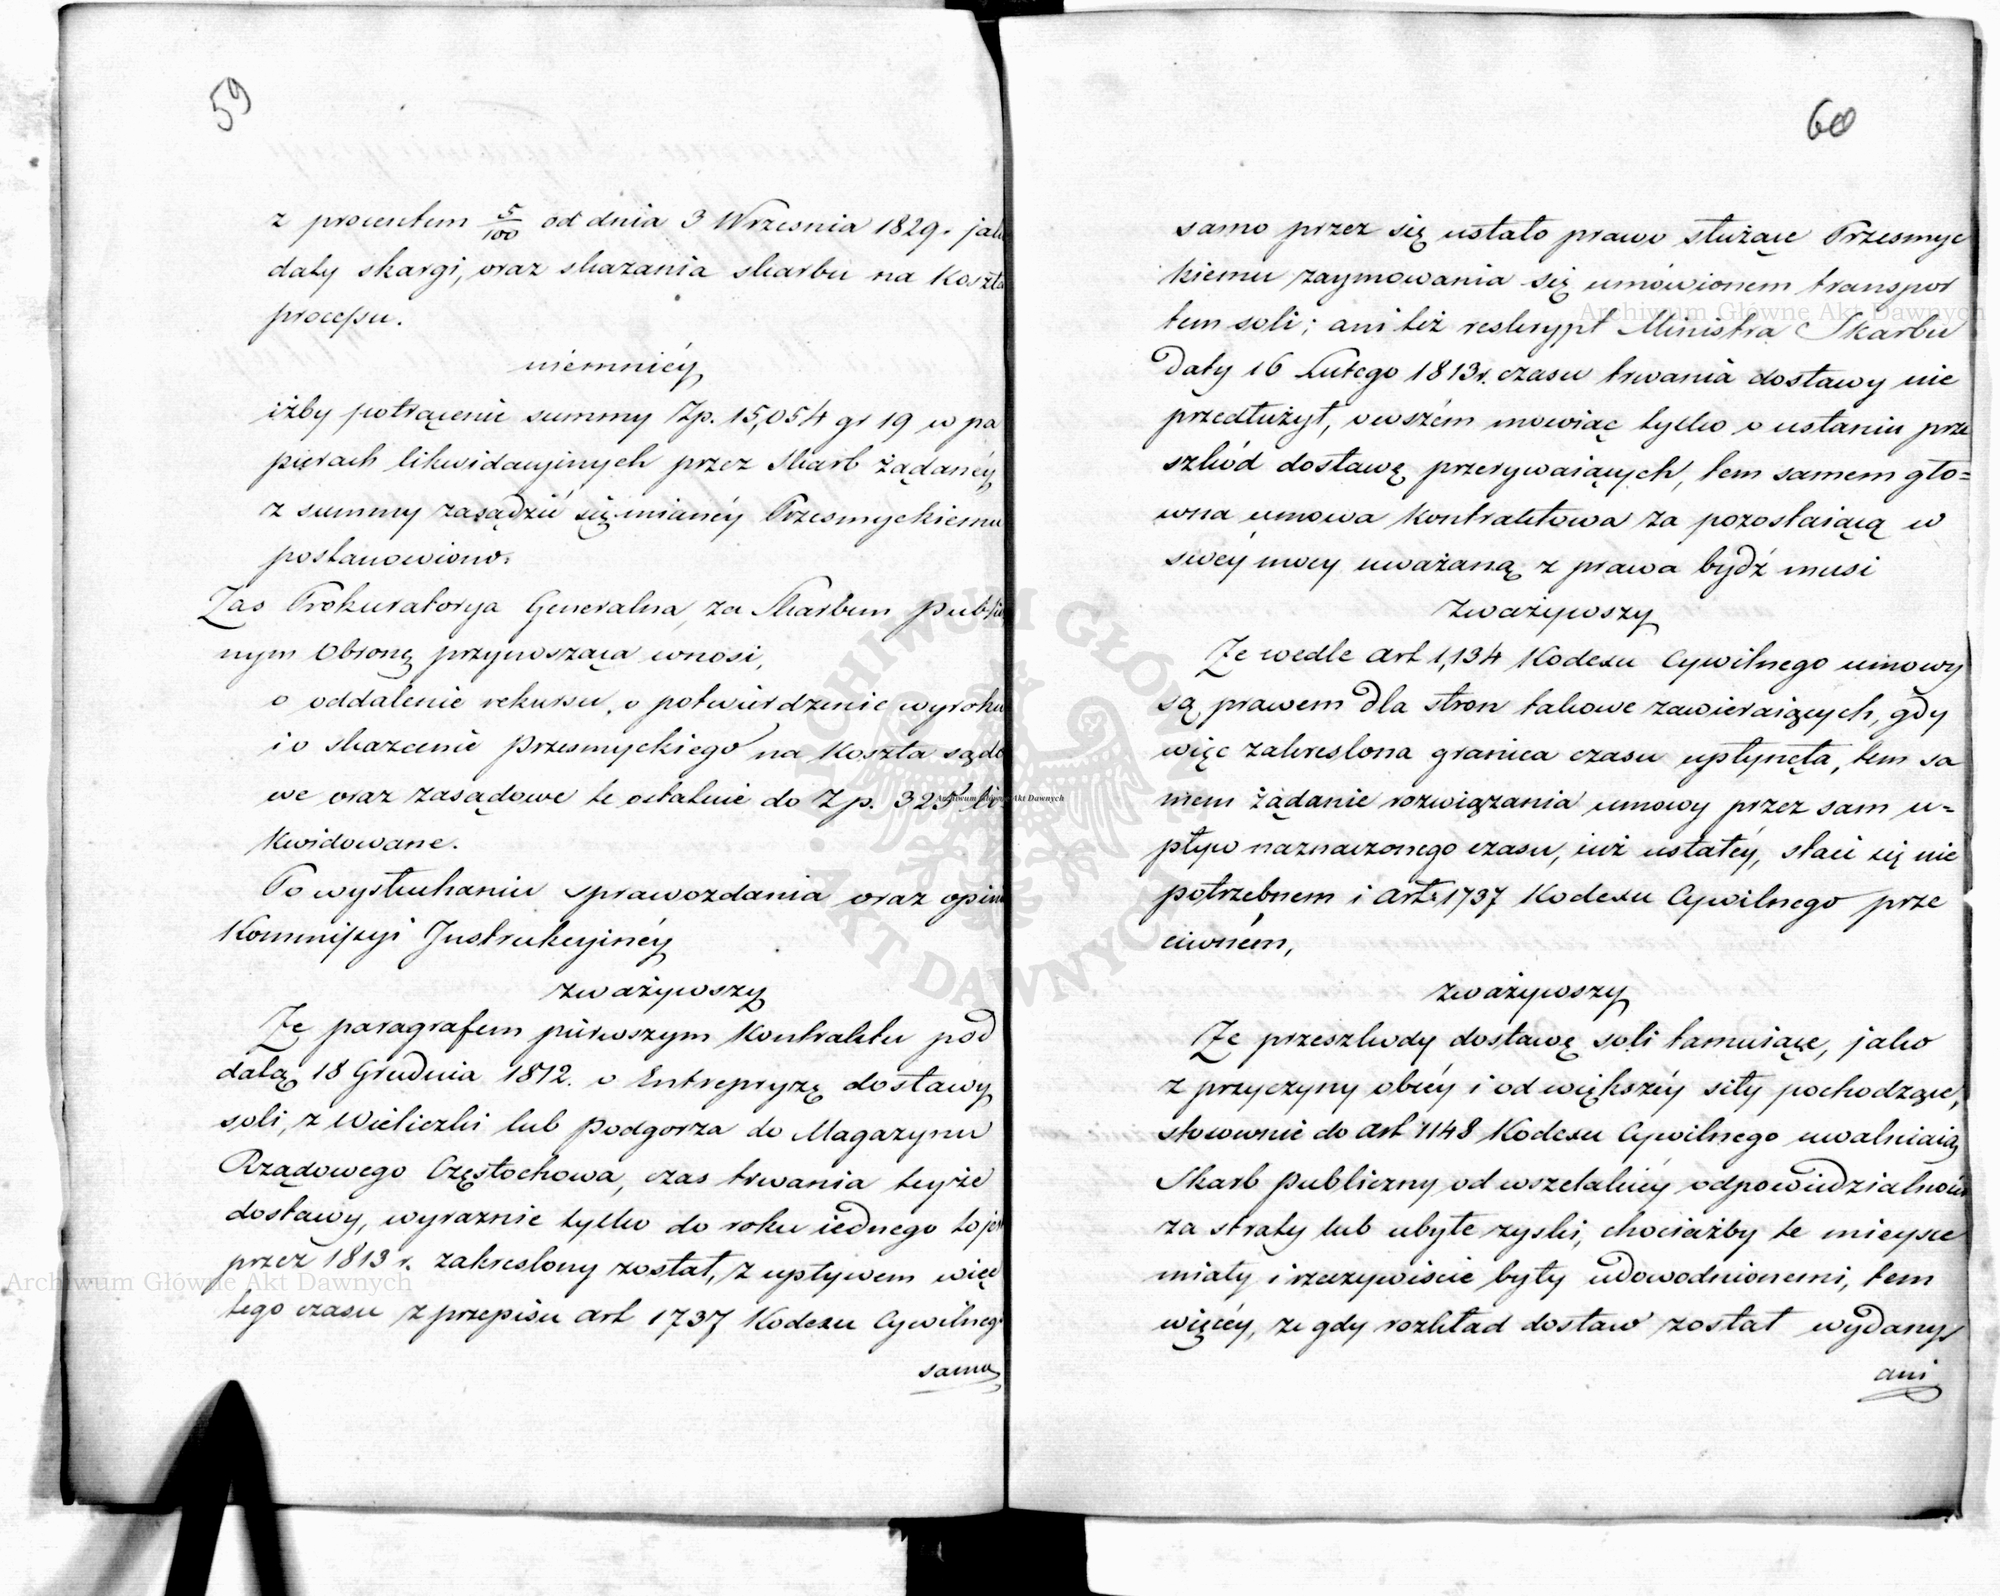 59
z procentem 5/100 od dnia 3 Wrzesnia 1829. jako
daty skargi, oraz skazania skarbu na koszta
processu.
niemniéy
iżby potrącenie summy Zp. 15,054 gr 19 w pa
pierach likwidacyinych przez Skarb żądanéy
z summy zasądzić się mianéy Przesmyckiemu
postanowiono.
Zas Prokuratorya Generalna, za Skarbem publicz
nym Obronę przynosząca wnosi,
o oddalenie rekursu, o potwierdzenie wyroku
i o skazanie Przesmyckiego na Koszta sądo
we oraz zasądowe te ostatnie do Zp. 325 li
kwidowane.
Po wysłuchaniu sprawozdania oraz opinii
Kommissyi Instrukcyinéy
zważywszy
Że paragrafem pierwszym Kontraktu pod
datą 18 Grudnia 1812. o Entrepryzę dostawy
soli, z Wieliczki lub Podgorza do Magazynu
Rządowego Częstochowa, czas trwania teyże
dostawy, wyraznie tylko do roku iednego to jest
przez 1813 r. zakreslony został, z upływem więc
tego czasu z przepisu art 1737 Kodexu Cywilnego
samo
60
samo przez się ustało prawo służące Przesmyc
kiemu zaymowania się umówionem transpor
tem soli; ani też reskrypt Ministra Skarbu
daty 16 Lutego 1813 r. czasu trwania dostawy nie
przedłużył, owszém mowiąc tylko o ustaniu prze
szkód dostawę przerywaiących, tem samem głó=
wna umowa Kontraktowa za pozostaiącą w
swéy mocy uważaną z prawa bydź musi
zważywszy
Że wedle art 1,134 Kodexu Cywilnego umowy
są prawem dla stron takowe zawieraiących, gdy
więc zakreslona granica czasu upłynęła, tem sa
mem żądanie rozwiązania umowy przez sam u=
pływ naznaczonego czasu, iuż ustałéy, staie się nie
potrzebnem i art. 1737 Kodexu Cywilnego prze
ciwném,
zważywszy
Że przeszkody dostawę soli tamuiące, jako
z przyczyny obcéy i od większéy siły pochodzące,
stosownie do art 1148 Kodexu Cywilnego uwalniaią
Skarb publiczny od wszelakiéy odpowiedzialności
za straty lub ubyłe zyski, chociażby te mieysce
miały i rzeczywiscie były udowodnionemi, tem
więcéy, że gdy rozkład dostaw został wydany,
ani
Archiwum Główne Akt Dawnych
Archiwum Główne Akt Dawnych
Archiwum Główne Akt Dawnych
ARCHIWUM GŁÓWNE AKT DAWNYCH